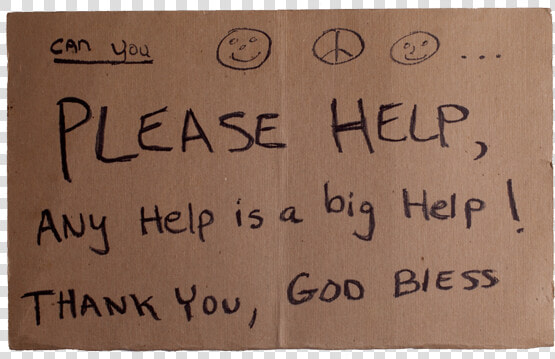 CAN YOU ...
PLEASE HELP,
ANy Help is a big Help!
THANK YOU, GOD BlESS